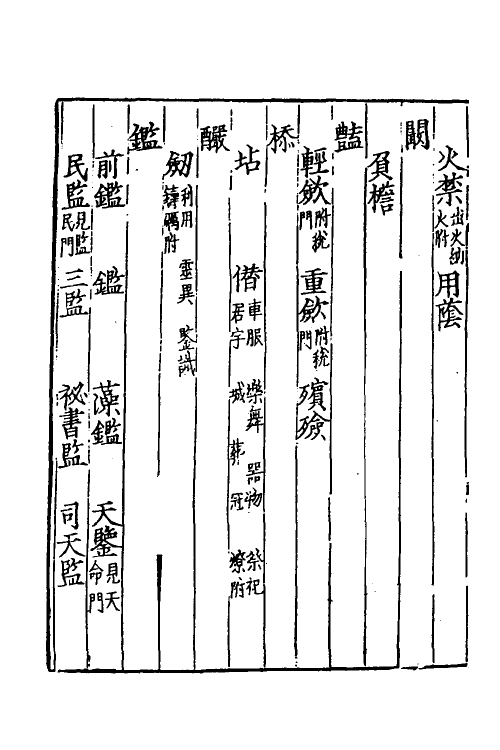 火禁 出火 火附 用蔭
闞
負檐
豔
輕斂 附稅門 重斂 附稅門 殯殮
㮇
坫 僭 車服 樂舞 器物 祭祀 君字 城 葬 冠 燎附
釅
劔 利用 靈異 鑒識 鑄礪附
鑑
前鑑 鑑 藻鑑 天鑒 見天命門
民監 見監民門 三監 祕書監 司天監